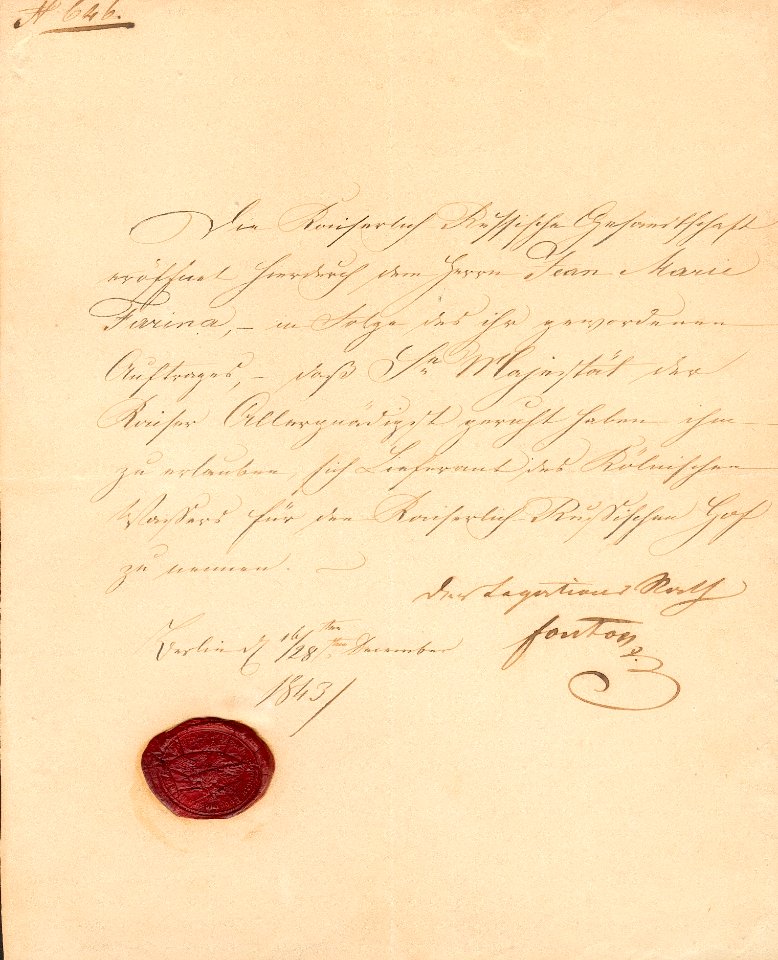 N 646.
Die Kaiserlich Russische Gesandtschaft
eröffnet hierdurch dem Herrn Jean Marie
Farina, – in Folge des ihr gewordenen
Auftrages, – daß Se Majestät der
Kaiser Allergnädigst geruht haben ihm
zu erlauben, sich Lieferant des Kölnischen
Wassers für den Kaiserlich Russischen Hof
zu nennen. –
Der Legations Rath
Fonton
Berlin d 16/28 ten December
1843/